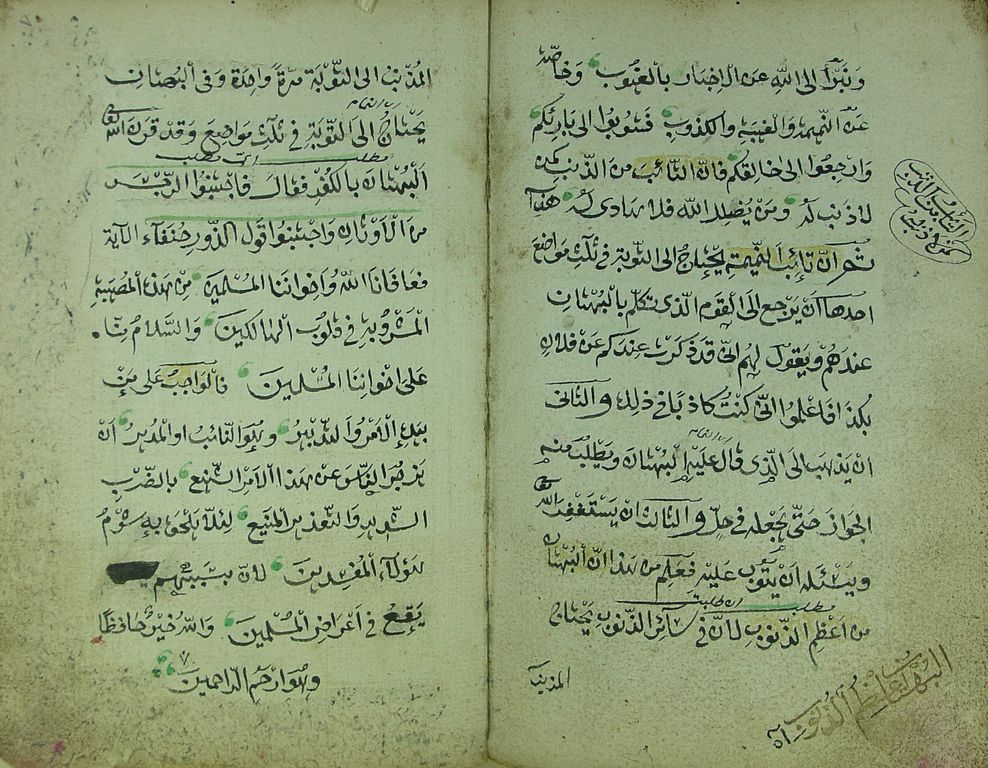 ونبرأ الى الله عن الاخبار بالغيوب وخاصة
عن النميمة والغيبة والكذوب فتوبوا الى بارئكم
وارجعوا الى خالقكم فان التائب من الذنب كمن
لا ذنب له ومن يضلل الله فلا هادى له هذا
ثم ان تائب النميمة يحتاج الى التوبة فى ثلث مواضع
احدها ان يرجع الى القوم الذى تكلم بالبهتان
عندهم ويقول لهم انى قد ذكرت عندكم عن فلان
بكذا فاعلموا انى كنت كاذبا فى ذلك والثانى
ان يذهب الى الذى قال عليه البهتان ويطلب منه
الجواز حتى يجعله فى حل والثالث ان يستغفر الله
ويسئله ان يتوب عليه فعلم من هذا ان البهتان
من اعظم الذنوب لان فى سائر الذنوب يحتاج
المذنب
التائب من الذنب
كمن لا ذنب له
البهتان اعظم الذنوب
المذنب الى التوبة مرة واحدة وفى البهتان
يحتاج الى التوبة فى ثلث مواضع وقد قرن الله
البهتان بالكفر فقال فاجتنبوا الرجس
من الاوثان واجتنبوا قول الزور حنفاء الآية
فعافانا الله واخواننا المسلمين من هذه المصيبة
فى قلوب الهالكين والسلام منا
على اخواننا المسلمين فالواجب على من
بيده الامر والتدبير وهو النائب او المدير ان
يزجر الناس عن هذا الامر الشنيع بالضرب
الشديد والتعذير المنيع لئلا يلحق به شوم
هؤلاء المفسدين لان بسببهم
يقع فى اعراض المسلمين والله خير حافظا
وهو ارحم الراحمين